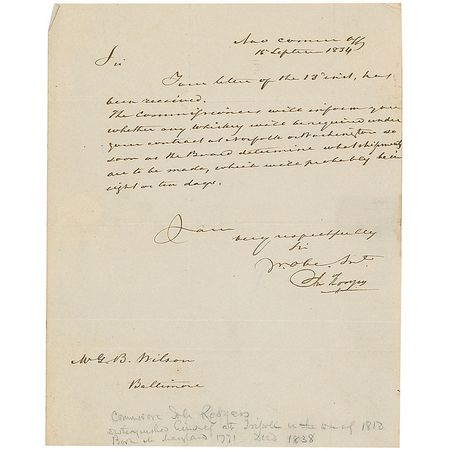 Nav Comm Off
15 Septem 1834
Sir
Your letter of the 13th inst, has
been received.
The Commissioners will inform you
whether any Whiskey will be required under
your contract at Norfolk or Washington so
soon as the Board determine what shipments
are to be made, which will probably be in
eight or ten days.
I am
very respectfully
Sir
Yr. Obe. Svt.
Jn Rodgers
Mr G. B. Wilson
Baltimore
Commodore John Rodgers
distinguished himself at Tripoli & in the war of 1812
Born in Maryland 1771 Died 1838